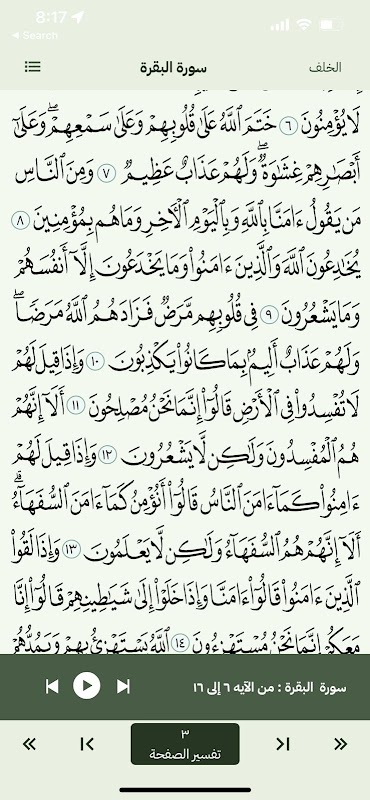 8:17
◀ Search
الخلف
سورة البقرة
لَا يُؤْمِنُونَ ٦ خَتَمَ ٱللَّهُ عَلَىٰ قُلُوبِهِمْ وَعَلَىٰ سَمْعِهِمْ ۖ وَعَلَىٰٓ
أَبْصَٰرِهِمْ غِشَٰوَةٌ ۖ وَلَهُمْ عَذَابٌ عَظِيمٌ ٧ وَمِنَ ٱلنَّاسِ
مَن يَقُولُ ءَامَنَّا بِٱللَّهِ وَبِٱلْيَوْمِ ٱلْءَاخِرِ وَمَا هُم بِمُؤْمِنِينَ ٨
يُخَٰدِعُونَ ٱللَّهَ وَٱلَّذِينَ ءَامَنُوا۟ وَمَا يَخْدَعُونَ إِلَّآ أَنفُسَهُمْ
وَمَا يَشْعُرُونَ ٩ فِى قُلُوبِهِم مَّرَضٌ فَزَادَهُمُ ٱللَّهُ مَرَضًا ۖ
وَلَهُمْ عَذَابٌ أَلِيمٌۢ بِمَا كَانُوا۟ يَكْذِبُونَ ١٠ وَإِذَا قِيلَ لَهُمْ
لَا تُفْسِدُوا۟ فِى ٱلْأَرْضِ قَالُوٓا۟ إِنَّمَا نَحْنُ مُصْلِحُونَ ١١ أَلَآ إِنَّهُمْ
هُمُ ٱلْمُفْسِدُونَ وَلَٰكِن لَّا يَشْعُرُونَ ١٢ وَإِذَا قِيلَ لَهُمْ
ءَامِنُوا۟ كَمَآ ءَامَنَ ٱلنَّاسُ قَالُوٓا۟ أَنُؤْمِنُ كَمَآ ءَامَنَ ٱلسُّفَهَآءُ ۗ
أَلَآ إِنَّهُمْ هُمُ ٱلسُّفَهَآءُ وَلَٰكِن لَّا يَعْلَمُونَ ١٣ وَإِذَا لَقُوا۟
ٱلَّذِينَ ءَامَنُوا۟ قَالُوٓا۟ ءَامَنَّا وَإِذَا خَلَوْا۟ إِلَىٰ شَيَٰطِينِهِمْ قَالُوٓا۟ إِنَّا
مَعَكُمْ إِنَّمَا نَحْنُ مُسْتَهْزِءُونَ ١٤ ٱللَّهُ يَسْتَهْزِئُ بِهِمْ وَيَمُدُّهُمْ
سورة البقرة : من الآيه ٦ إلى ١٦
٣
تفسير الصفحة